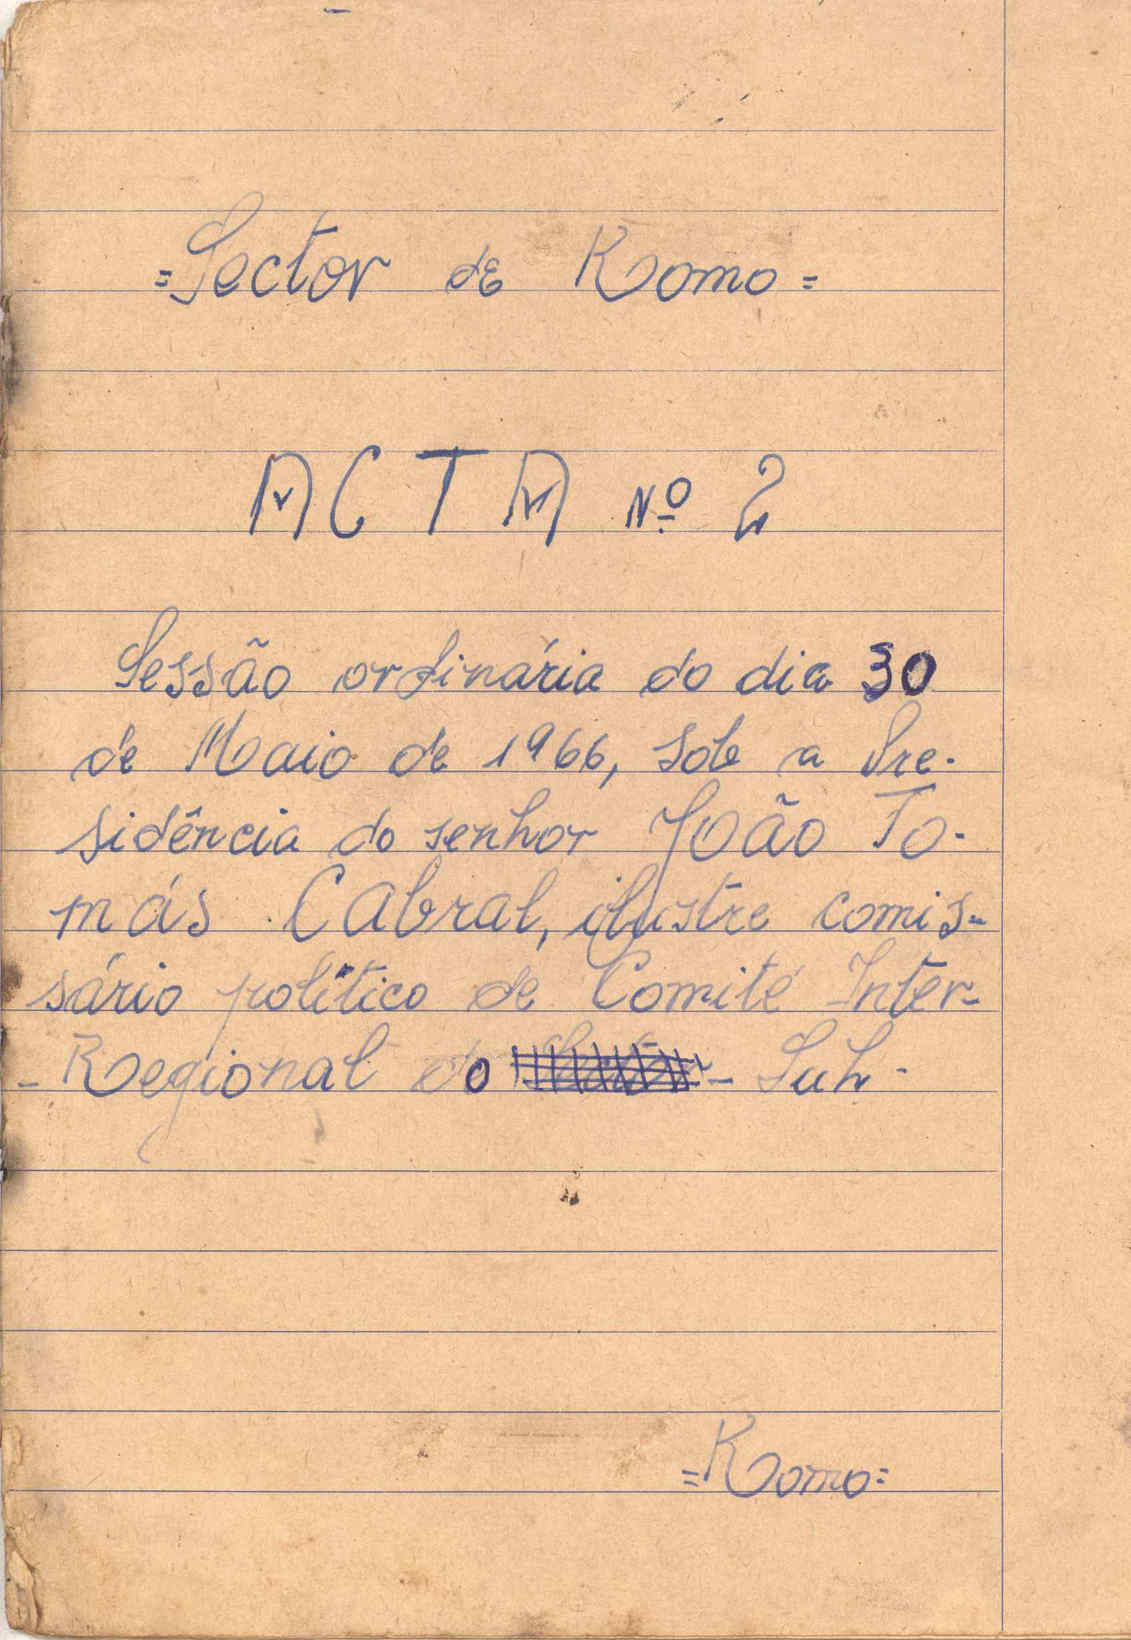 =Sector de Komo=
ACTA Nº 2
Sessão ordinária do dia 30
de Maio de 1966, sob a Pre-
sidência do senhor João To-
más Cabral, ilustre comis-
sário político de Comité Inter-
-Regional do - Sul.
=Komo=